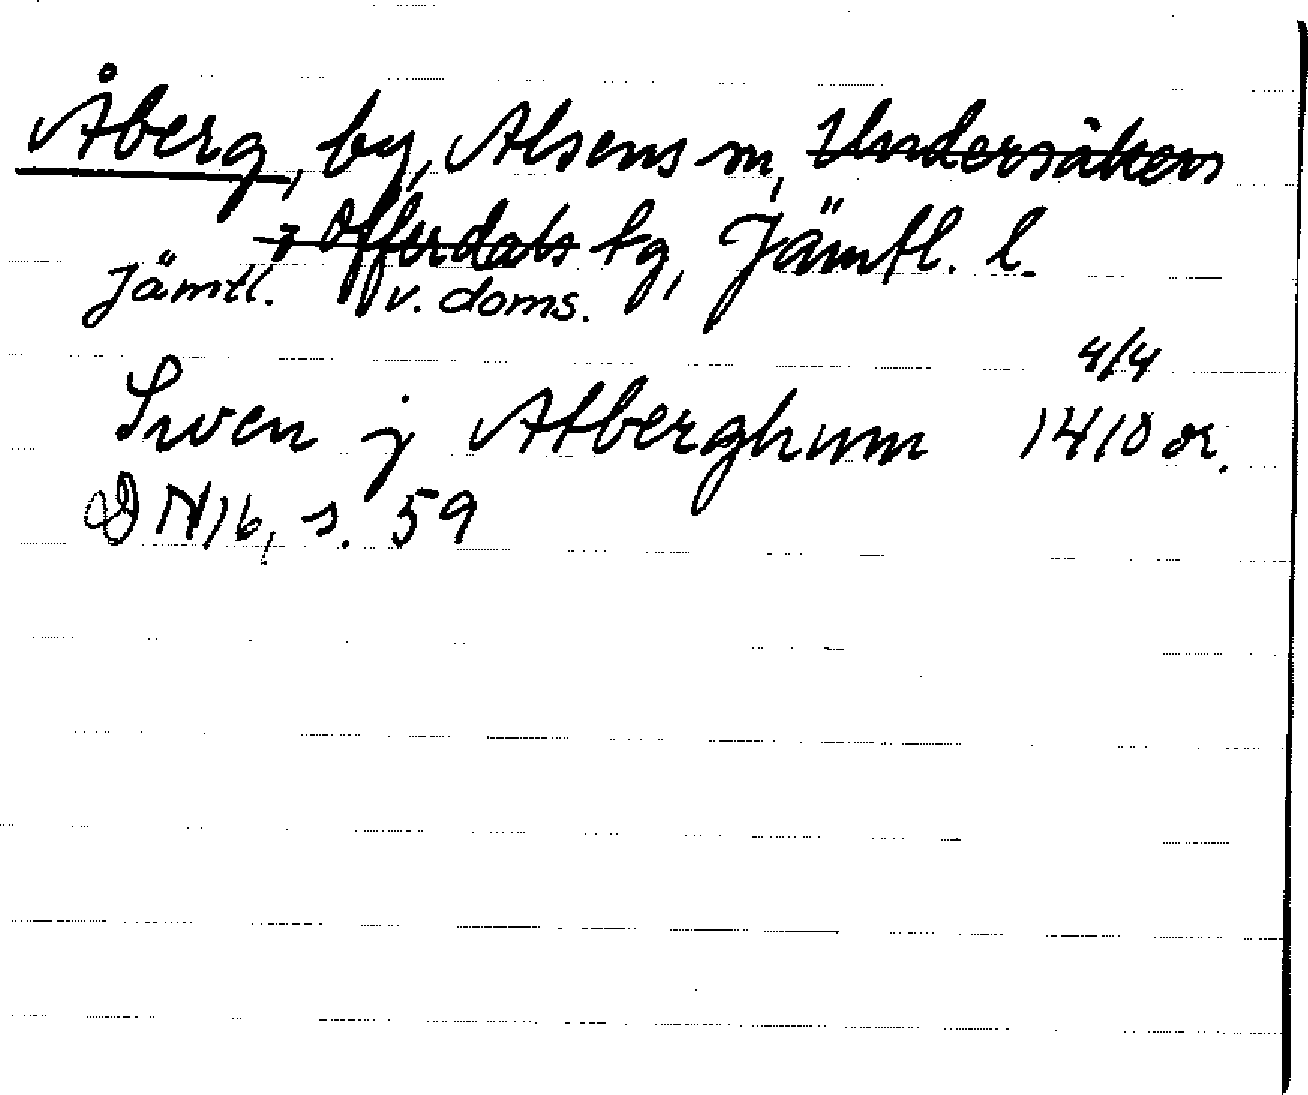 Åberg, by, Alsens sn, Undersåkers
o Offerdals tg, Jämtl. l.
Jämtl. v. doms.
4/4
Swen j Atberghum 1410 or.
DN 16, s. 59